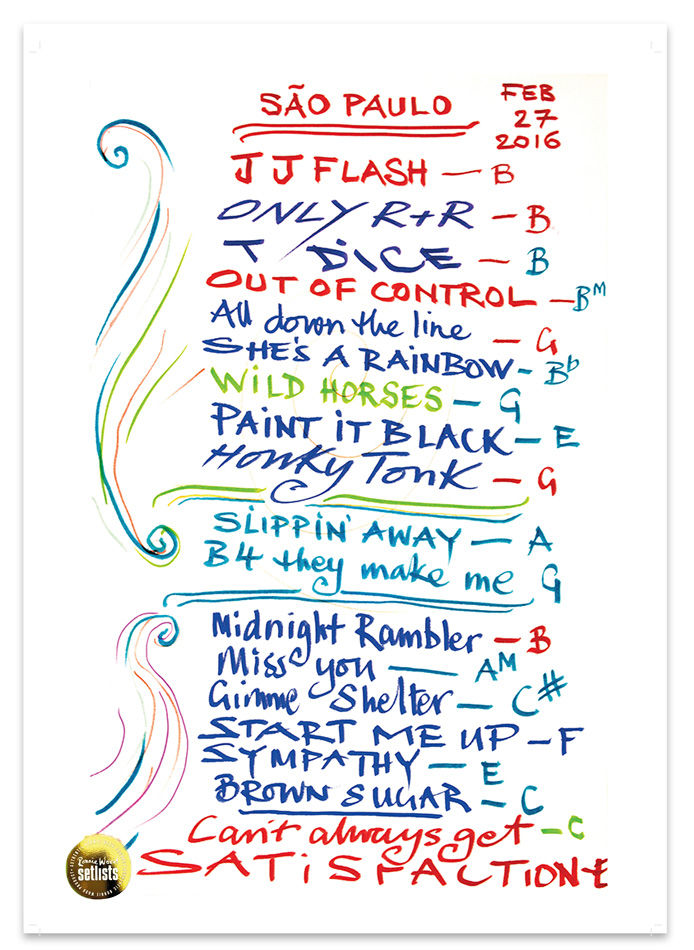 SÃO PAULO
FEB
27
2016
J J FLASH — B
ONLY R+R — B
T/DICE — B
OUT OF CONTROL — BM
All down the line — G
SHE'S A RAINBOW - Bb
WILD HORSES — G
PAINT IT BLACK — E
HONKY TONK — G
SLIPPIN' AWAY — A
B4 they make me G
Midnight Rambler — B
Miss you — AM
Gimme Shelter — C#
START ME UP - F
SYMPATHY — E
BROWN SUGAR - C
Can't always get - C
SATISFACTION - E
Ronnie Wood
setlists